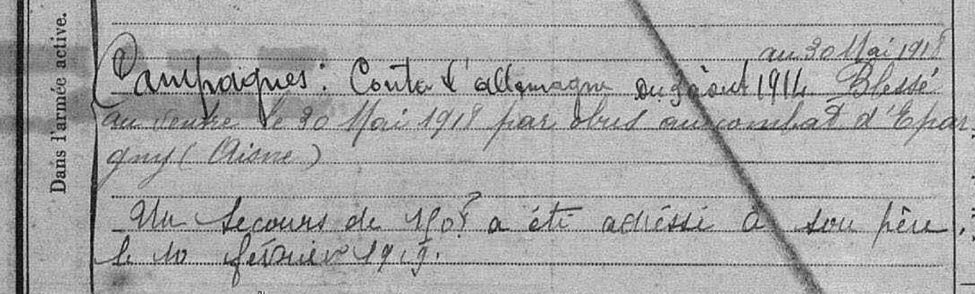 Dans l'armée active.
au 30 Mai 1918
Campagnes : Contre l'allemagne du 3 août 1914 Blessé
au ventre le 30 Mai 1918 par obus au combat d'Epar
gny (Aisne)
Un secours de 150f a été adréssé à son père.
le 10 février 1919.